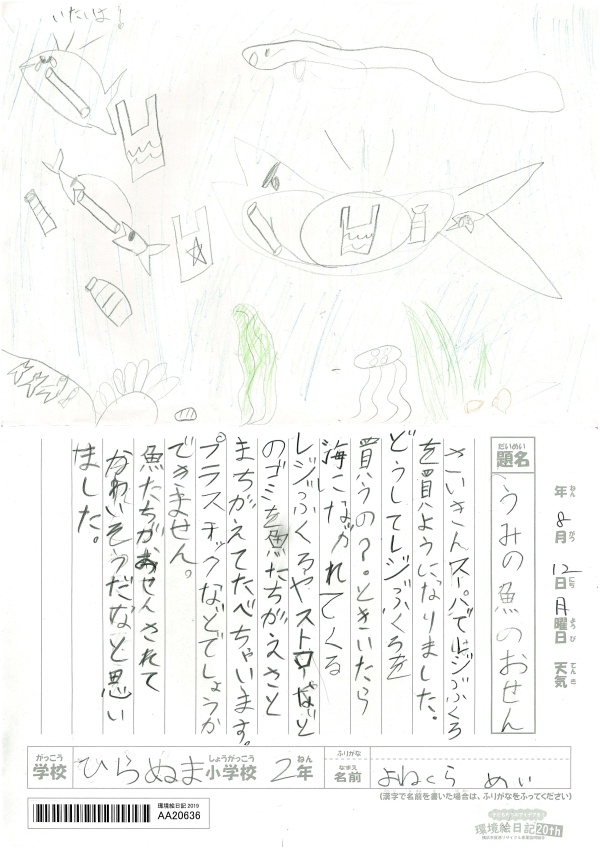 いたいよ!
だいめい
題名
うみの魚のおせん
年 8月 12日 月曜日 天気
ねん がつ にち ようび てんき
さいきんスーパでレジぶくろ
を買ようになりました。
どうしてレジぶくろを
買うの?。ときいたら
海にながれてくる
レジぶくろやストローなど
のゴミを魚たちがえさと
まちがえてたべちゃいます。
プラスチックなどでしょうか
できません。
魚たちがおせんされて
かわいそうだなと思い
ました。
がっこう しょうがっこう ねん ふりがな
学校 ひらぬま小学校 2年
なまえ
名前 よねくら めい
(漢字で名前を書いた場合は、ふりがなをふってください)
環境絵日記 2019
AA20636
環境絵日記 20th